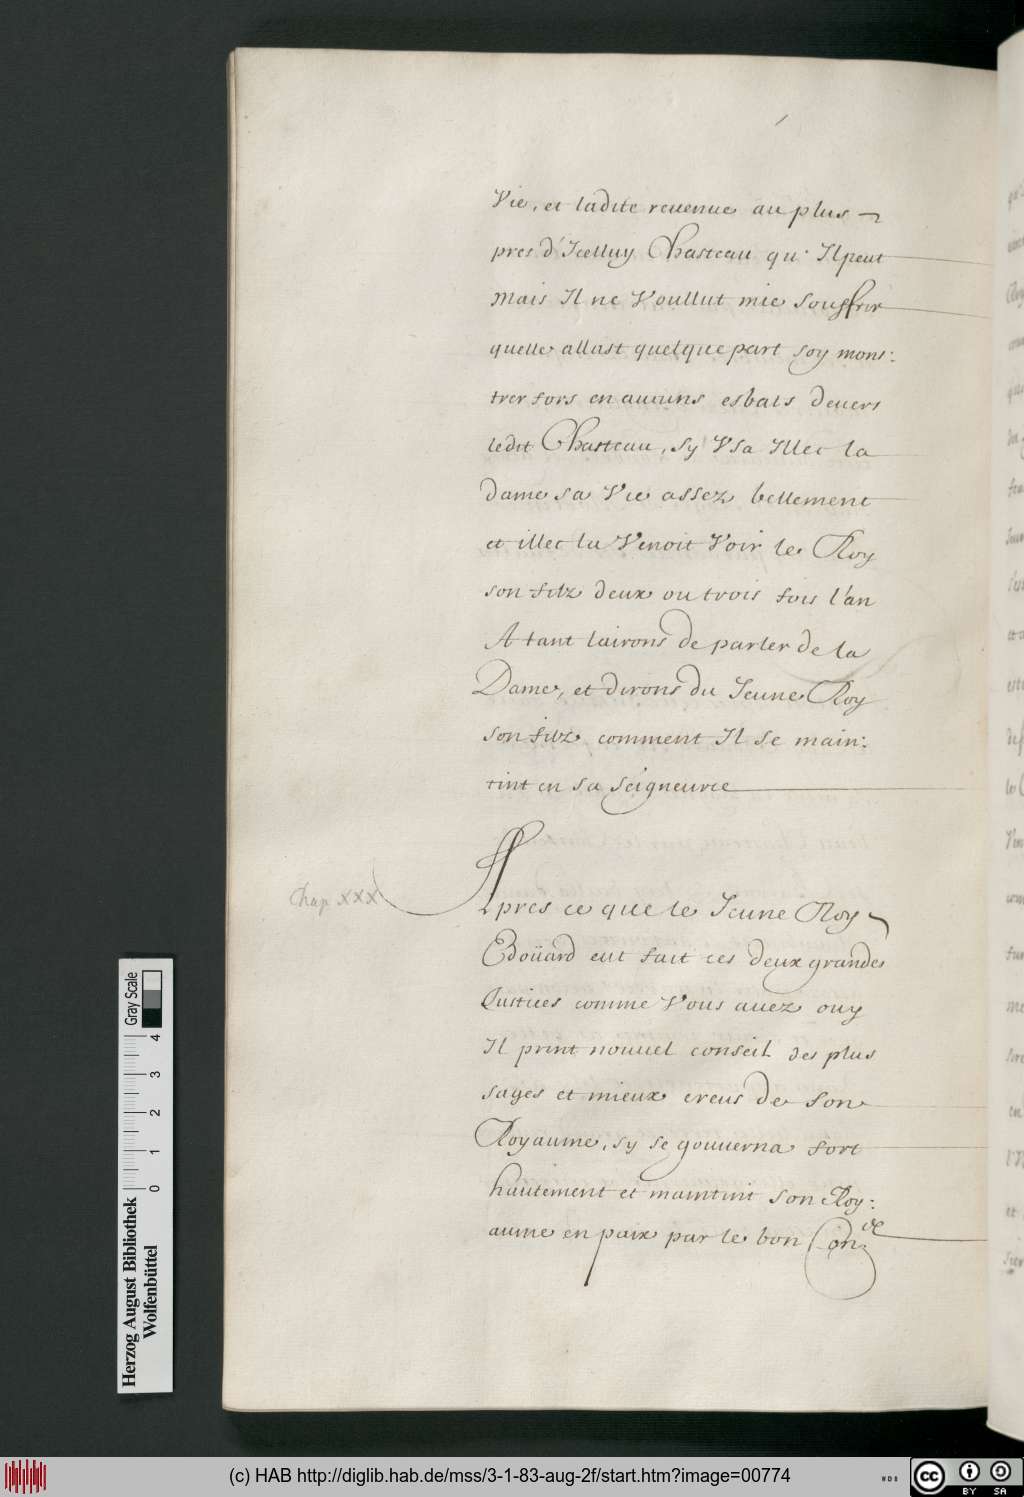 Vie, et ladite reuenue au plus
pres d'Icelluy Chasteau qu' Il peut
Mais Il ne Voullut mie souffrir
quelle allast quelque part soy mons:
trer fors en aucuns esbats deuers
ledit Chasteau, sy Vsa Illec la
dame sa Vie assez bellement
et illec la Venoit Voir le Roy
son filz deux ou trois fois l'an
A tant lairons de parler de la
Dame, et dirons du Jeune Roy
son filz comment Il se main:
tint en sa seigneurie
Chap XXX
Apres ce que le Jeune Roy
Edoüard eut fait ces deux grandes
Justices comme Vous auez ouy
Il print nouuel conseil des plus
sages et mieux creus de son
Royaume, sy se gouuerna fort
hautement et maintint son Roy:
aume en paix par le bon Con:
Herzog August Bibliothek
Wolfenbüttel
Gray Scale
0 1 2 3 4
(c) HAB http://diglib.hab.de/mss/3-1-83-aug-2f/start.htm?image=00774
WDB
cc BY SA